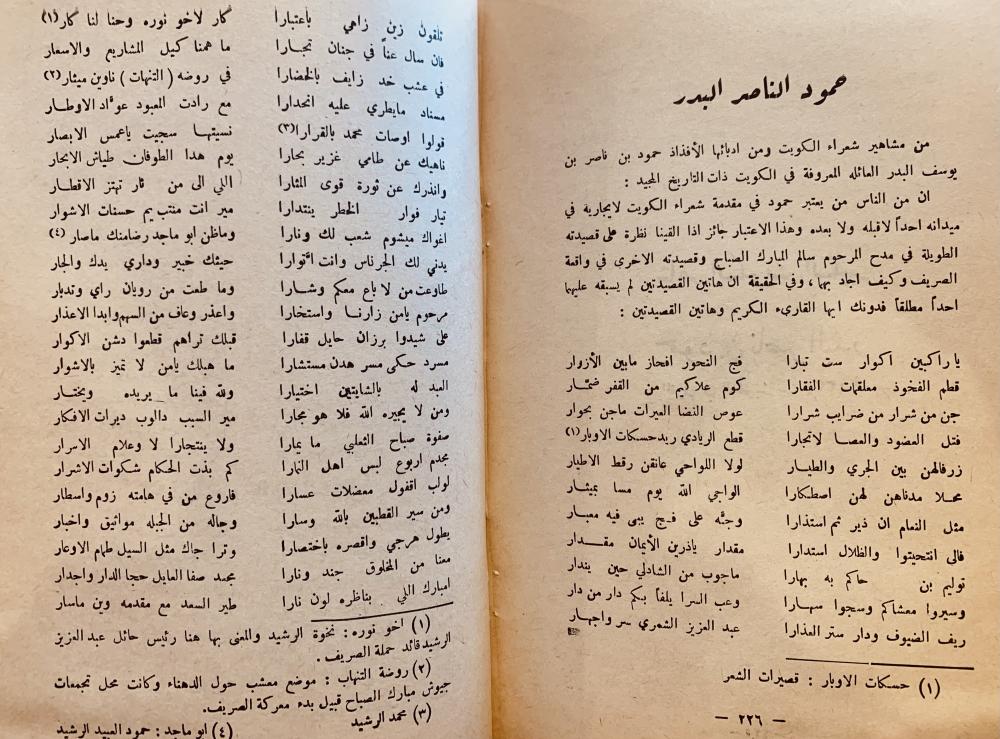 حمود الناصر البدر
من مشاهير شعراء الكويت ومن ادبائها الأفذاذ حمود بن ناصر بن
يوسف البدر العائله المعروفة في الكويت ذات التاريخ المجيد :
ان من الناس من يعتبر حمود في مقدمة شعراء الكويت لايجاريه في
ميدانه احداً لاقبله ولا بعده وهذا الاعتبار جائز اذا القينا نظرة على قصيدته
الطويلة في مدح المرحوم سالم المبارك الصباح وقصيدته الاخرى في واقعة
الصريف وكيف اجاد بها ، وفي الحقيقة ان هاتين القصيدتين لم يسبقه عليهما
احداً مطلقاً فدونك ايها القارىء الكريم وهاتين القصيدتين :
ياراكبين اكوار ست تبارا فج النحور افحاز مابين الأزوار
قطم الفخوذ معلقات الفقارا كوم علاكيم من القفر ضمّار
جن من شرار من ضرايب شرارا عوص النضا العيرات ماجن بحوار
فتل العضود والعصا لاتجارا قطع الريادي ربد حسكات الاوبار (١)
زرفالهن بين الجري والطيار لولا اللواحي عانقن رقط الاطيار
محلا مدناهن لهن اصطكارا الواجي الله يوم مسا بمبثار
مثل النعام ان ذير ثم استذارا وجنّه على فج يبى فيه معبار
فالى انتحيتوا والظلال استدارا مقدار ياذرين الأيمان مقدار
توليم بن حاكم به بهارا ماجوب من الشاذلي حين يندار
وسيروا معشاكم وسجوا سهارا وعب السرا يلفأ بكم دار من دار
ريف الضيوف ودار ستر العذارا عبد العزيز الشمري سر واجهار
(١) حسكات الاوبار : قصيرات الشعر
— ٢٢٦ —
تلقون زين زاهي باعتبارا كار لاخو نوره وحنا لنا كار (١)
فان سال عناً في جنان تجارا ما همنا كيل المشاريع والاسعار
في عشب خد زايف بالخضارا في روضه ( التنهات ) ناوين ميثار (٢)
مسناد مايطري عليه انحدارا مع رادت المعبود عوّاد الاوطار
قولوا اوصات محمد بالقرارا (٣) نسيتها سجيت ياعمس الابصار
ناهيك عن طامي غزير بحارا يوم هدا الطوفان طياش الابحار
وانذرك عن ثورة قوى المثارا اللي الى من ثار تهتز الاقطار
تيار فوار الخطر ينتدارا مير انت منتب يم حسنات الاشوار
اغواك ميشوم شعب لك ونارا وماظن ابو ماجد رضامنك ماصار (٤)
يدني لك الجرناس وانت اتوارا حيثك خبير وداري يدك والجار
طاوعت من لا باع معكم وشارا وما طعت من رويان راي وتدبار
مرحوم يامن زارنا واستخارا واعذر وعاف من السهم وابدا الاعذار
على شيدوا برزان حايل قفارا قبلك تراهم قطعوا دشن الاكوار
مسرد حكى مسر هدن مستشارا ما هبلك يامن لا تميز بالاشوار
العبد له بالشايتين اختيارا ولله فينا ما يريده وبختار
ومن لا يجيره الله فلا هو مجارا مير السبب دالوب ديرات الافكار
صفوة صباح الثعلبي ما يمارا ولا ينتجارا لا وعلام الاسرار
مجدم اربوع لبس اهل النمارا كم بذت الحكام شكوات الاشرار
لولب اقفول معضلات عسارا فاروع من في هامته زوم واسطار
ومن سير القطبين بالله وسارا وجاله من الجبله مواثيق واخبار
يطول هرجي واقصره باختصارا وترا جاك مثل السيل طهام الاوعار
معنا من المخلوق جند ونارا مجد صفا العايل حجا الدار واجدار
امبارك اللي بناظره لون نارا طير السعد مع مقدمه وين ماسار
(١) اخو نوره : نخوة الرشيد والمعنى بها هنا رئيس حائل عبد العزيز
الرشيد قائد حملة الصريف .
(٢) روضة التنهاب : موضع معشب حول الدهناء وكانت محل تجمعات
جيوش مبارك الصباح قبيل بدء معركة الصريف .
(٣) محمد الرشيد (٤) ابو ماجد : حمود العبيد الرشيد